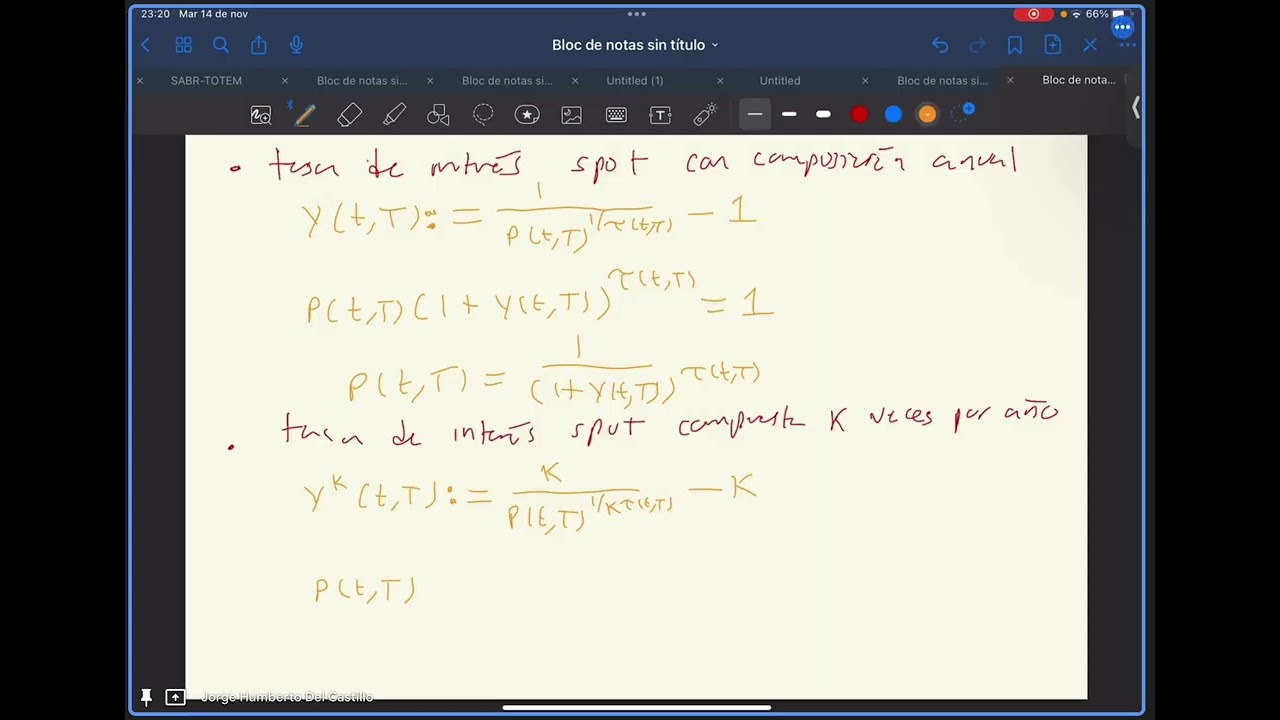 23:20 Mar 14 de nov 66%
Bloc de notas sin título
SABR-TOTEM Bloc de notas si... Bloc de notas si... Untitled (1) Untitled Bloc de notas si... Bloc de nota...
• tasa de interés spot con composición anual
Y(t,T) := 1 / P(t,T)^{1/τ(t,T)} - 1
P(t,T)(1 + Y(t,T))^{τ(t,T)} = 1
P(t,T) = 1 / (1+Y(t,T))^{τ(t,T)}
• tasa de interés spot compuesta K veces por año
Y^K(t,T) := K / P(t,T)^{1/Kτ(t,T)} - K
P(t,T)
Jorge Humberto Del Castillo